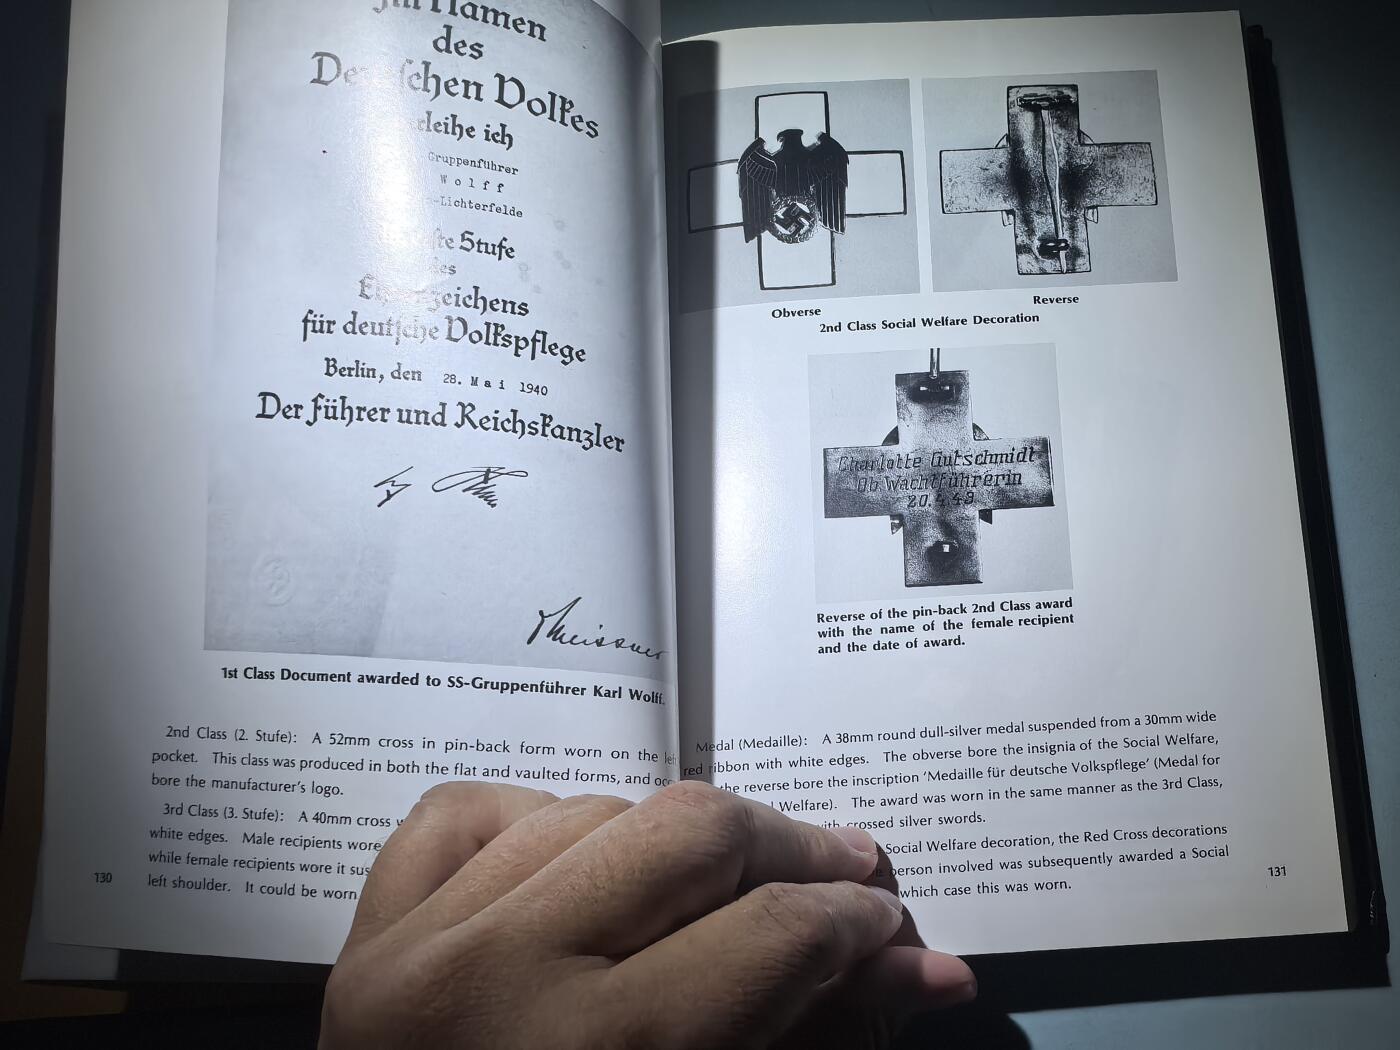 Im Namen
des
Deutschen Volkes
verleihe ich
Gruppenführer
Wolff
-Lichterfelde
Stufe
des
Ehrenzeichens
für deutsche Volkspflege
Berlin, den 28. Mai 1940
Der Führer und Reichskanzler
Meissner
1st Class Document awarded to SS-Gruppenführer Karl Wolff.
2nd Class (2. Stufe): A 52mm cross in pin-back form worn on the left
pocket. This class was produced in both the flat and vaulted forms, and
bore the manufacturer's logo.
3rd Class (3. Stufe): A 40mm cross
white edges. Male recipients wore
while female recipients wore it
left shoulder. It could be worn
130
Obverse
Reverse
2nd Class Social Welfare Decoration
Charlotte Gutschmidt
Ob. Wachtführerin
20.4.43
Reverse of the pin-back 2nd Class award
with the name of the female recipient
and the date of award.
Medal (Medaille): A 38mm round dull-silver medal suspended from a 30mm wide
red ribbon with white edges. The obverse bore the insignia of the Social Welfare,
the reverse bore the inscription 'Medaille für deutsche Volkspflege' (Medal for
Welfare). The award was worn in the same manner as the 3rd Class,
with crossed silver swords.
Social Welfare decoration, the Red Cross decorations
person involved was subsequently awarded a Social
which case this was worn.
131